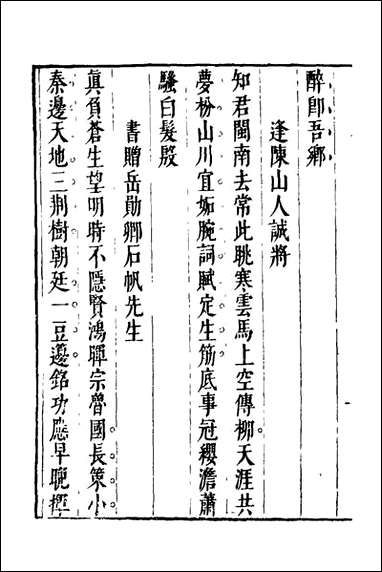 醉卽吾鄉
逢陳山人誠將
知君閩南去常此眺寒雲馬上空傳柳天涯共
夢枌山川宜妬腕詞賦定生筋底事冠纓澹蕭
騷白髮殷
書贈岳勛卿石帆先生
眞負蒼生望明時不隱賢鴻暉宗魯國長策小
秦邊天地三荆樹朝廷一豆籩銘功應早晚